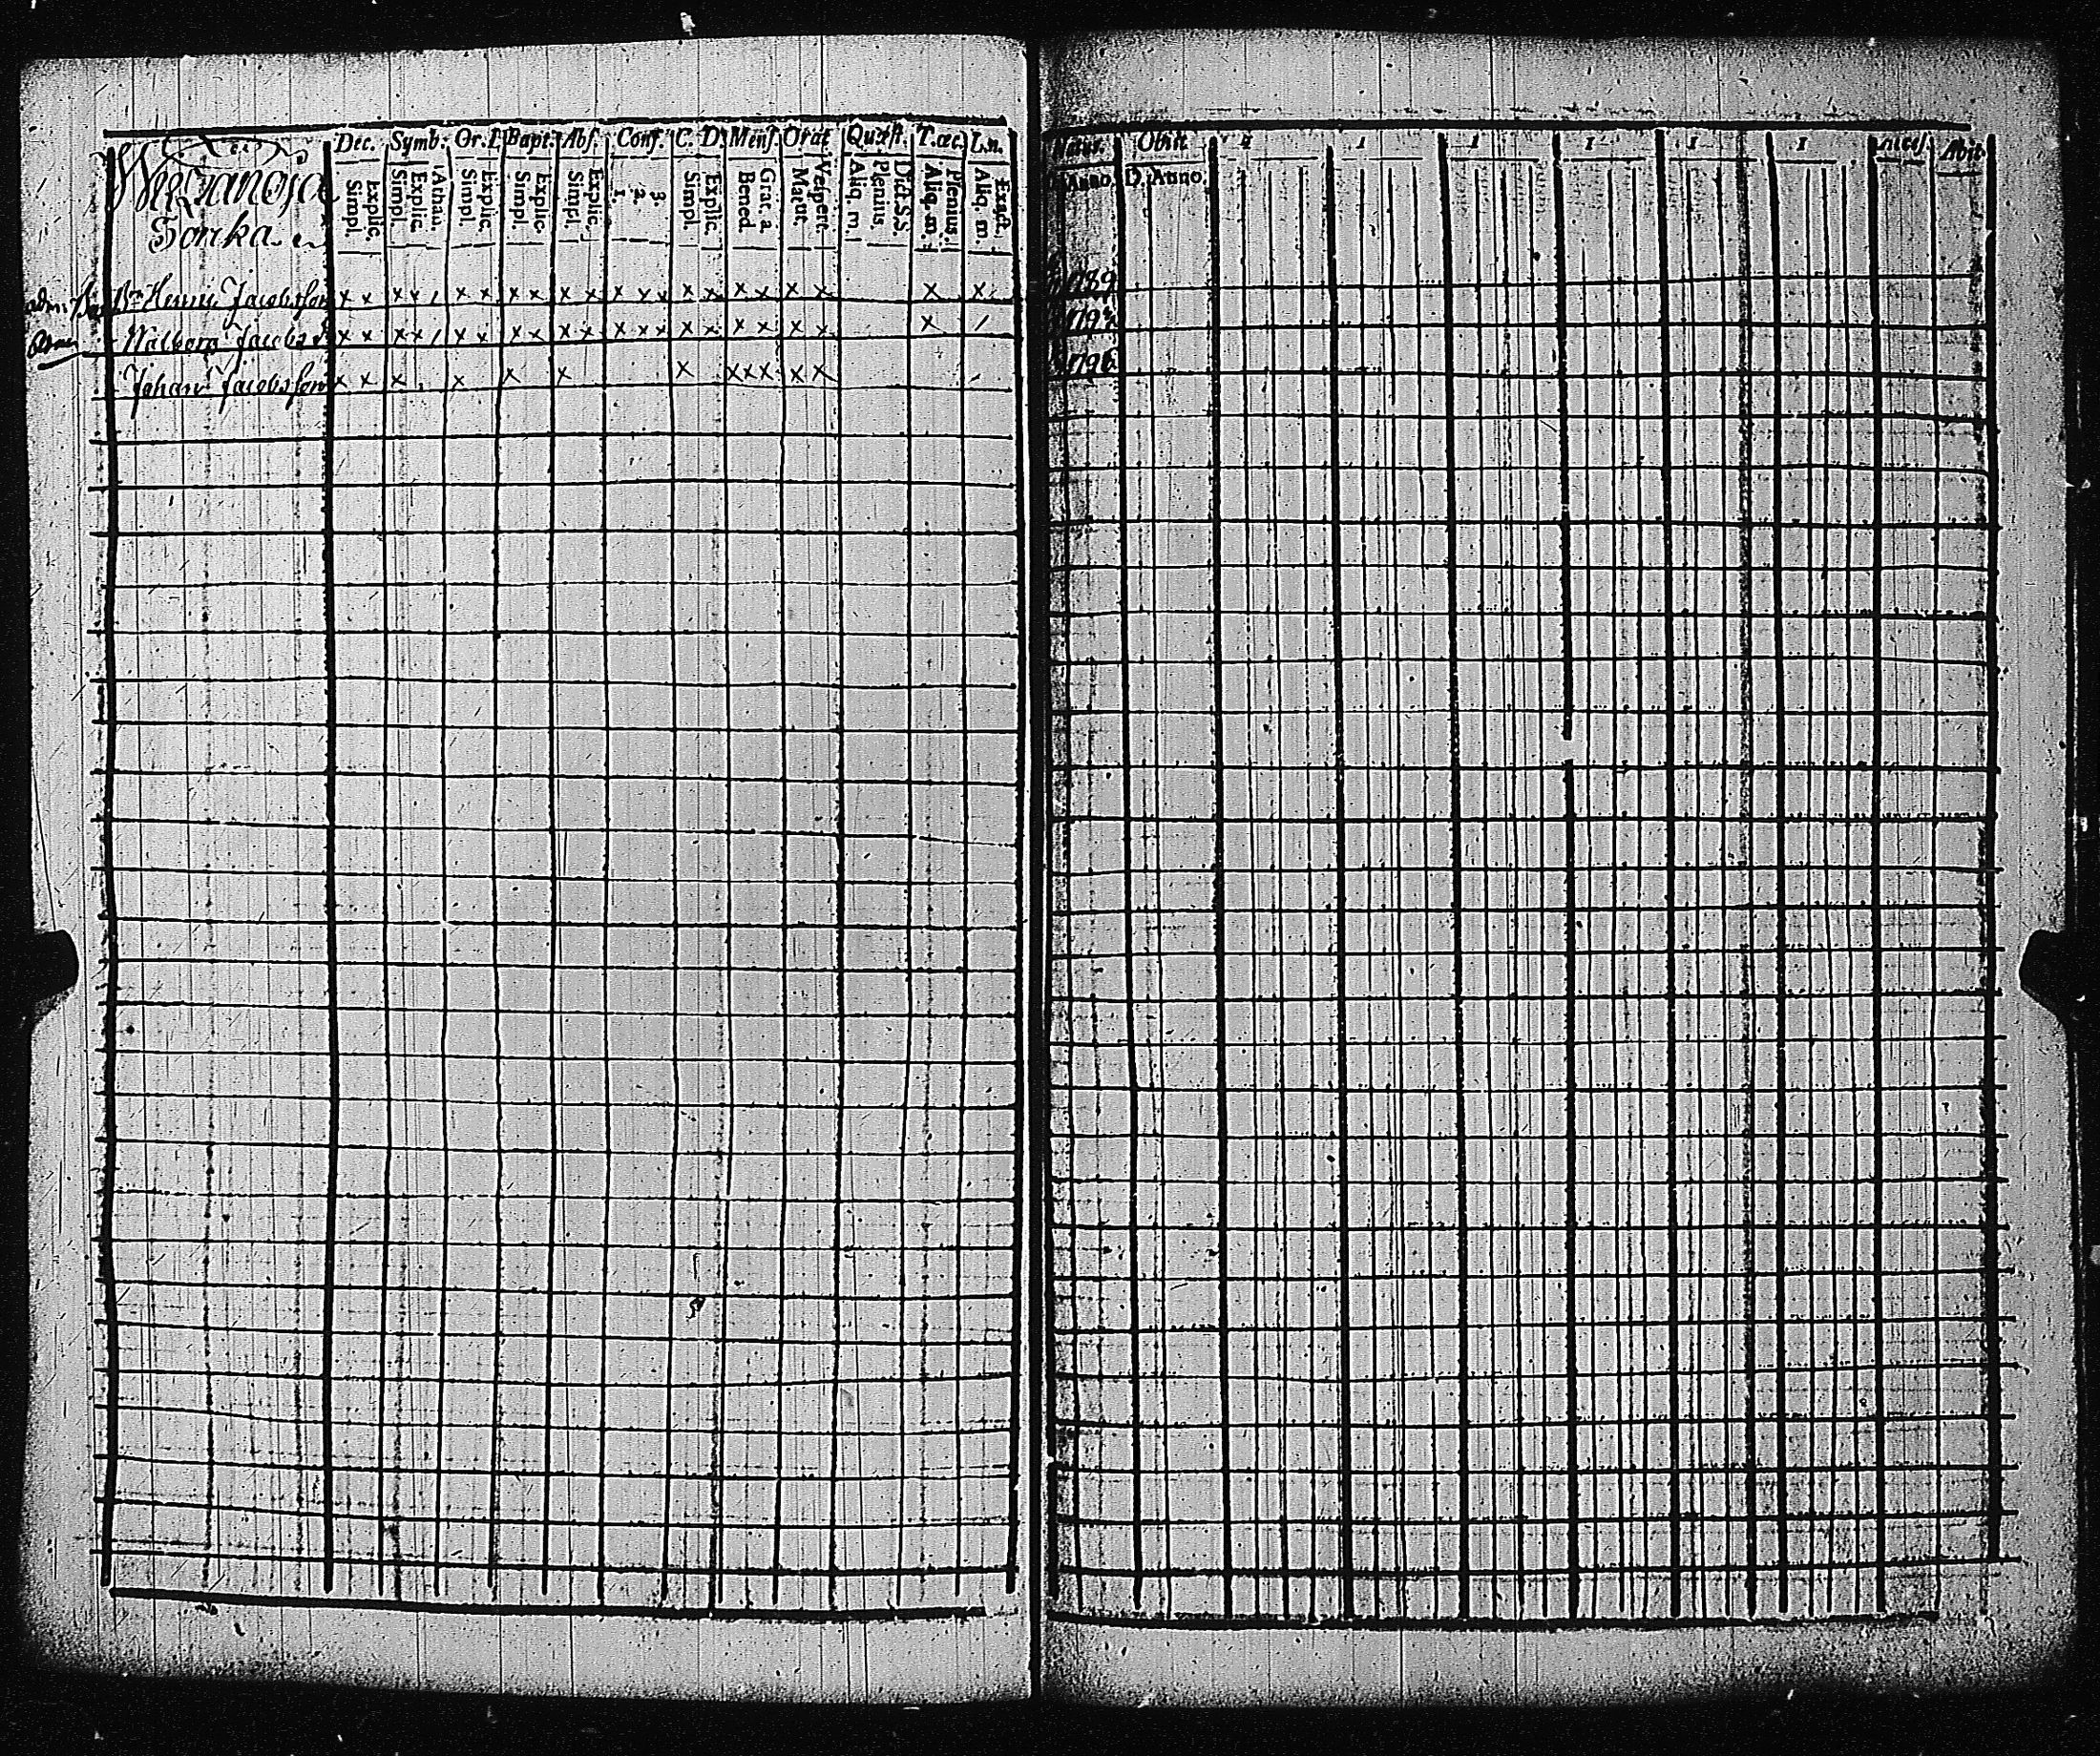 Dec. Symb. Or. D. Bapt. Abs. Conf. C. D. Mens. Orat. Quæst. T. æc. L. n.
Simpl. Explic. Simpl. Explic. Athan. Simpl. Explic. Simpl. Explic. Simpl. Explic. 1. 2. 3. Simpl. Explic. Bened. Grat. a. Matut. Vespert. Aliq. m. Plenius. Dict. S.S. Aliq. m. Plenius. Aliq. m. Exact.
Sorka
Henric Jacobsson x x x x / x x x x x x x x x x x x x x x x x
Walborg Jacobsd x x x x / x x x x x x x x x x x x x x x x /
Johan Jacobsson x x x x x x x x x x x x
Natus. Obiit. 1 1 1 1 1 1 Access. Abiit
Anno. D. Anno.
1789
179
179